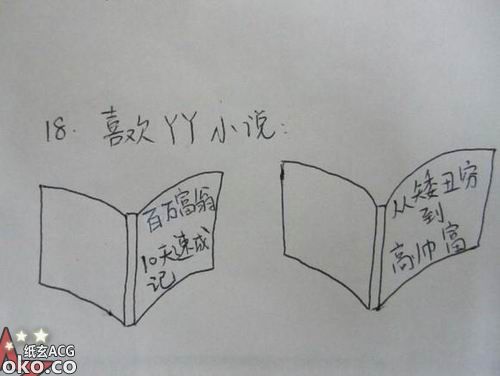 18. 喜欢YY小说:
百万富翁
10天速成
记
从矮丑穷
到
高帅富
纸玄ACG
oko.co